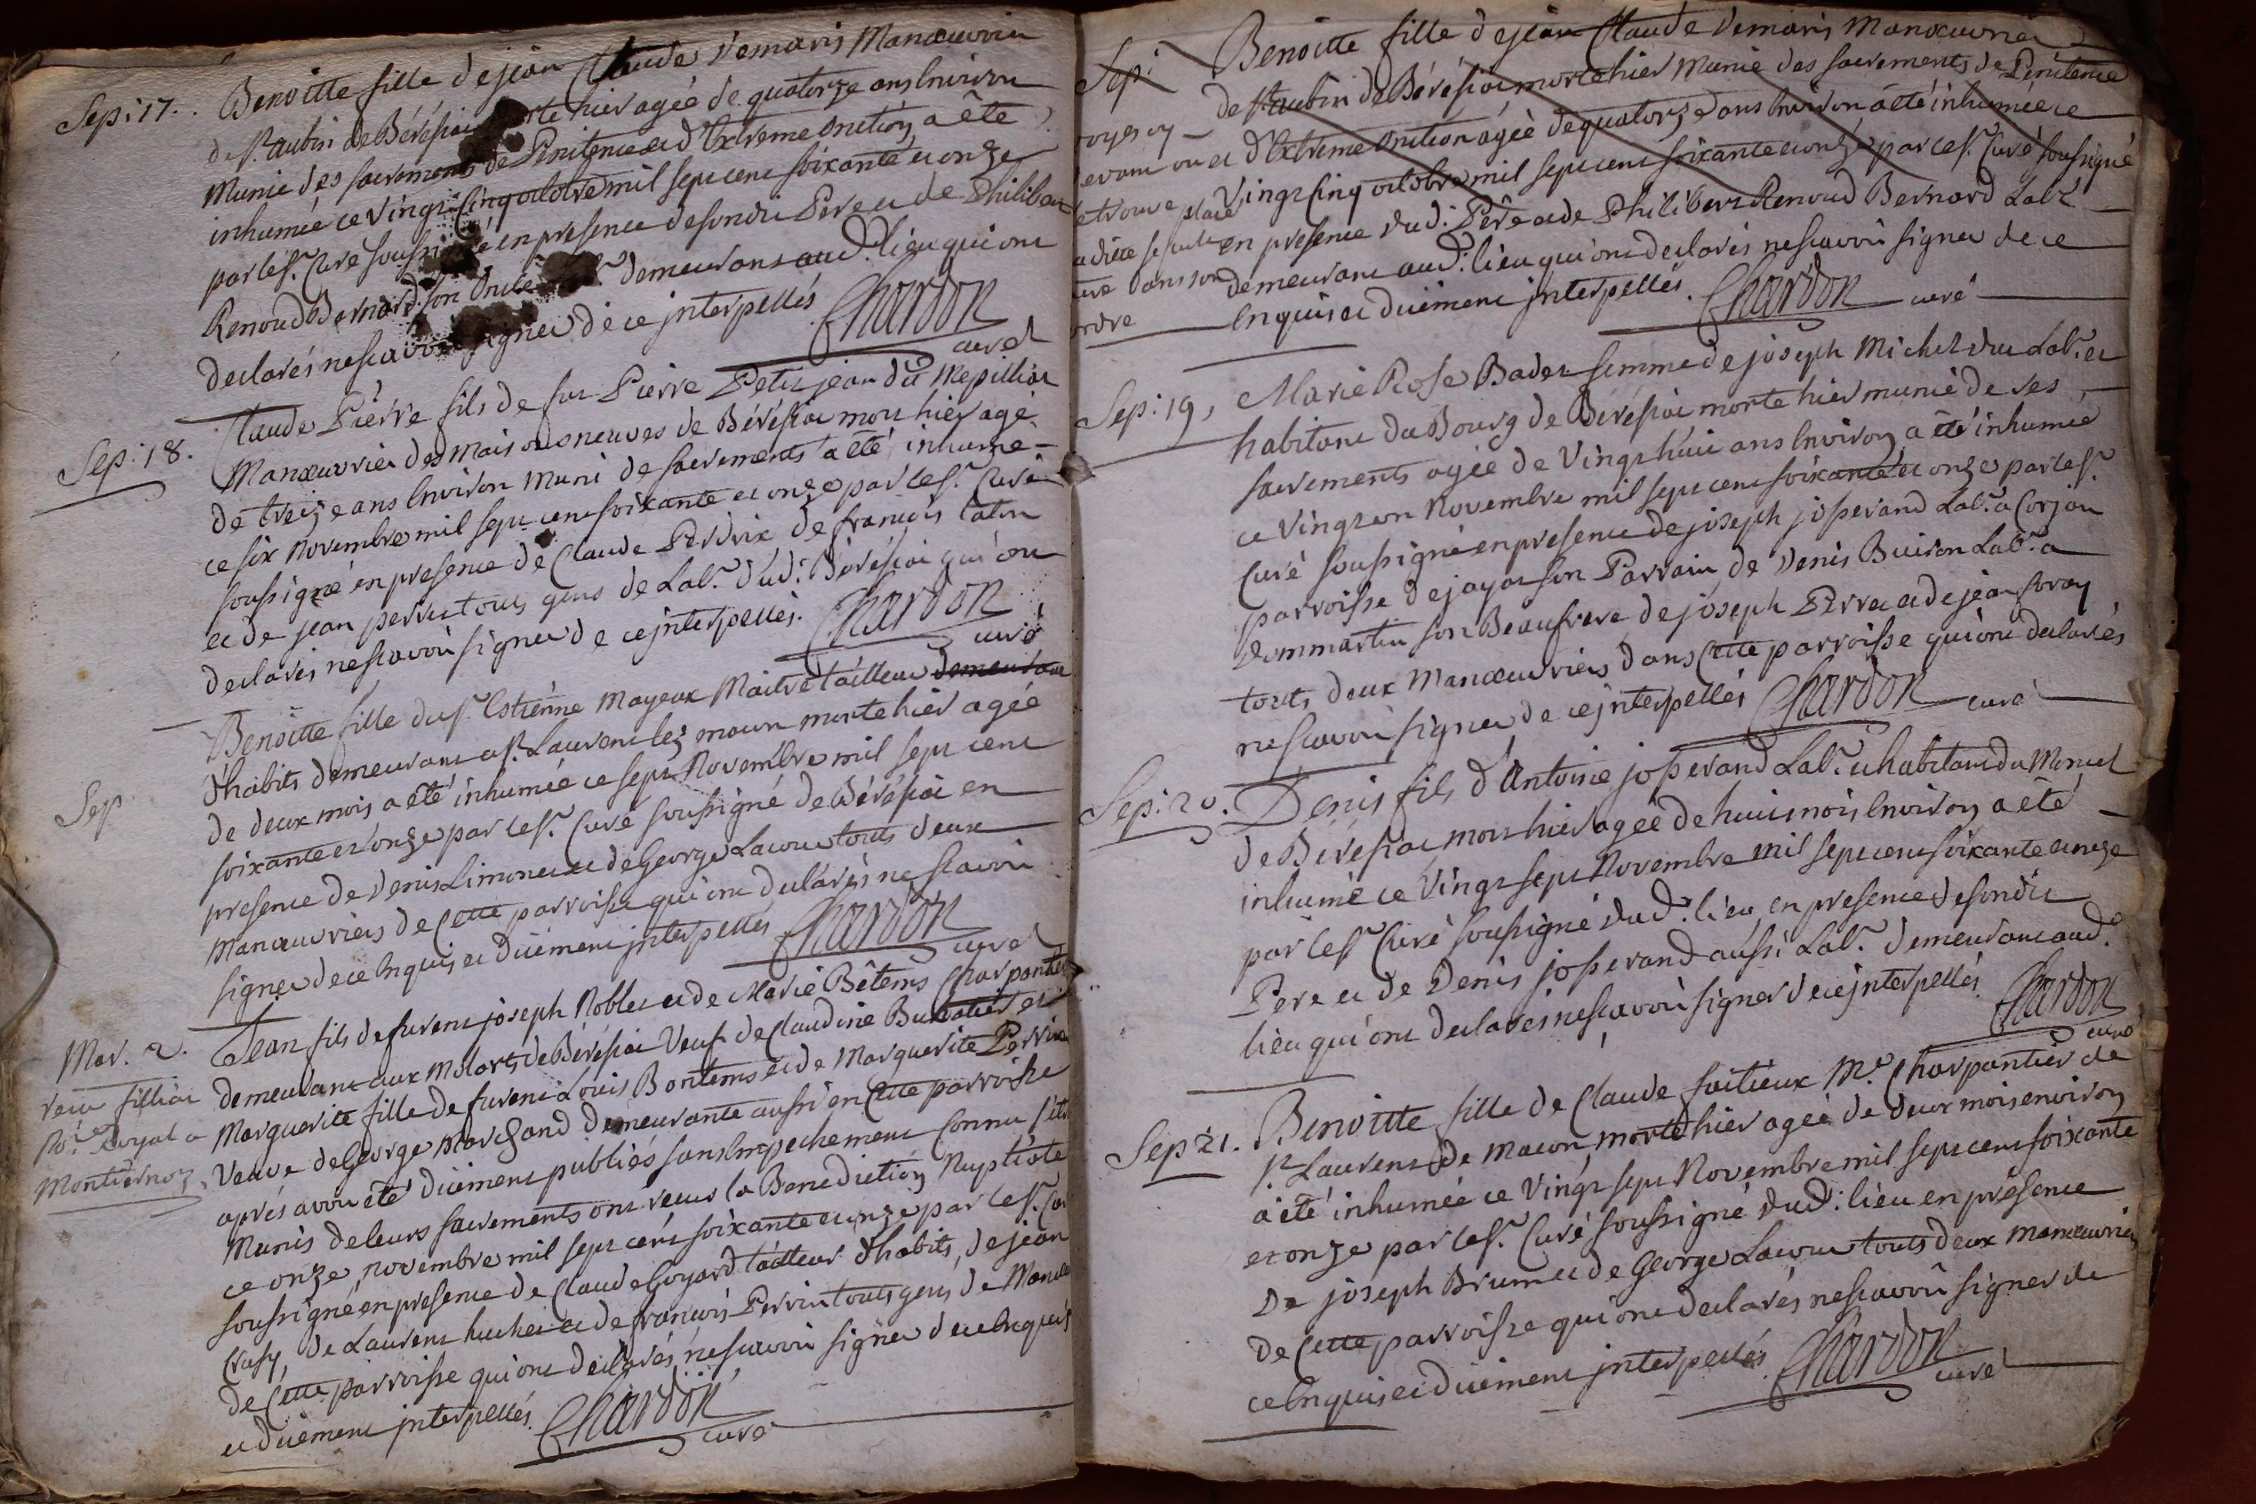 Sep: 17. Benoitte fille de jean Claude Demaris Manoeuvrier
de st. aubin de Béréfiai morte hier agée de quatorze ans Environ
Munie des sacrements de Penitence et d'Extreme Onction a été
inhumée ce vingt Cinq octobre mil sept cent soixante et onze
par le sr. Curé soussigné en presence de sondit Pere et de Philibert
Renoud Bernard son Oncle demeurans aud. lieu qui ont
declarés ne scavoir signer de ce jnterpellés. Chardon
curé
Sep: 18. Claude Pierre fils de feu Pierre Petit jean du Mepilliat
Manoeuvrier des Maisons neuves de Béréfiai mort hier agé
de treize ans Environ Muni de sacrements a été inhumé
ce six Novembre mil sept cent soixante et onze par le sr. Curé
soussigné en presence de Claude Perdrix de francois Catin
et de jean perrin tous gens de Labr. dud: Béréfiai qui ont
declarés ne scavoir signer de ce jnterpellés. Chardon
curé
Sep Benoitte fille du sr. Estienne Mayeux Maitre tailleur demeurant
d'habits demeurant a st. Laurent lez macon morte hier agée
de deux mois a été inhumée ce sept Novembre mil sept cent
soixante et onze par le sr. Curé soussigné de Béréfiai en
presence de Denis Limonet et de George Lacour touts deux
Manoeuvriers de Cette parroisse qui ont declarés ne scavoir
signer de ce Enquis et düement jnterpellés Chardon
curé
Mar. 2. Jean fils de furent joseph Noblet et de Marie Bêtems Charpentier
demeurant aux Molarts de Béréfiai Veuf de Claudine Buvatier et
vcu filliat Marguerite fille de furent Louis Bontems et de Marguerite Perrin
Nore. Royal a Veuve de George Marchand demeurante aussi en Cette parroisse
Montdernoz, après avoir été düement publiés sans Empechement Connu s'etant
Munis de leurs sacrements ont recus la Benediction Nuptiale
ce onze novembre mil sept cent soixante et onze par le sr. Cu
soussigné en presence de Claude Goyard tailleur d'habits, de jean
Crusy, de Laurent huchet et de francois Perrin touts gens de Manoeu
de Cette parroisse qui ont declarés ne scavoir signer de ce Enquis
et düement jnterpellés. Chardon
curé
Sep: Benoitte fille de jean Claude Demaris Manoeuvrier
de st. aubin de Béréfiai morte hier Munie des sacrements de Penitence
voyes cy et d'Extreme Onction agée de quatorze ans Environ a été inhumée ce
devant ou vingt Cinq octobre mil sept cent soixante et onze par le sr. Curé soussigné
se trouve placé en presence dud: Pere et de Philibert Renoud Bernard Labr.
demeurant aud: lieu qui ont declarés ne scavoir signer de ce
dans son Enquis et düement jnterpellés. Chardon curé
ordre
Sep: 19, Marie Rose Badez femme de joseph Michel dut Labr. et
habitant du Bourg de Béréfiai morte hier munie de ses
sacrements agée de Vingt huit ans Environ a été inhumée
ce Vingt un Novembre mil sept cent soixante et onze par le sr.
Curé soussigné en presence de joseph josserand Labr. a Corjon
parroisse de jayat son Parrain de Denis Buiron Labr. a
Dommartin son Beaufrere de joseph Perret et de jean foray
touts deux Manoeuvriers dans Cette parroisse qui ont declarés
ne scavoir signer de ce jnterpellés Chardon
curé
Sep: 20. Denis fils d'Antoine josserand Labr. et habitant du Moncel
de Béréfiai mort hier agée de huit mois Environ a été
inhumé ce Vingt sept Novembre mil sept cent soixante et onze
par le sr. Curé soussigné dud: lieu en presence de sondit
Pere et de Denis josserand aussi Labr. demeurant aud.
lieu qui ont declarés ne scavoir signer de ce jnterpellés. Chardon
curé
Sep 21. Benoitte fille de Claude saitieux Me. Charpantier de
st. Laurent de Macon morte hier agée de deux mois environ
a été inhumée ce Vingt sept Novembre mil sept cent soixante
et onze par le sr. Curé soussigné dud: lieu en présence
De joseph Brumet de George Lacour touts deux manoeuvriers
de Cette parroisse qui ont declarés ne scavoir signer de
ce Enquis et düement jnterpellés. Chardon
curé